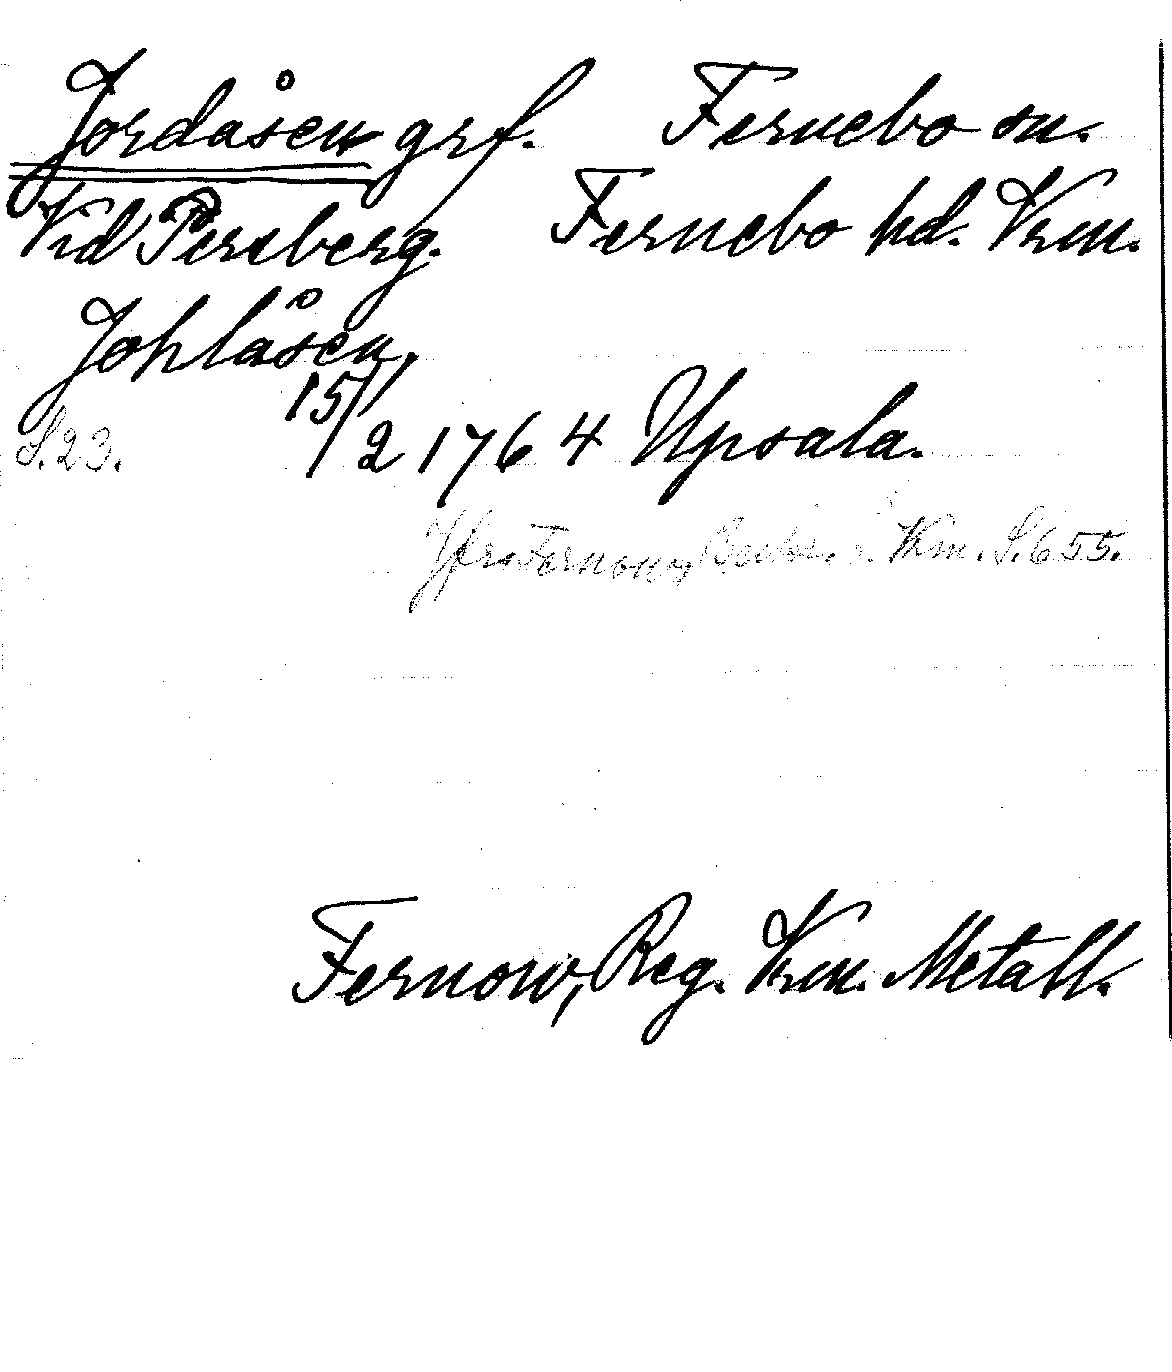 Jordåsen grf. Fernebo sn.
Vid Persberg. Fernebo hd. Vrm.
Johlåsen,
S.23. 15/2 1764 Upsala.
Jfr Fernow, Vrm. S. 655.
Fernow, Reg. Vrm. Metall.